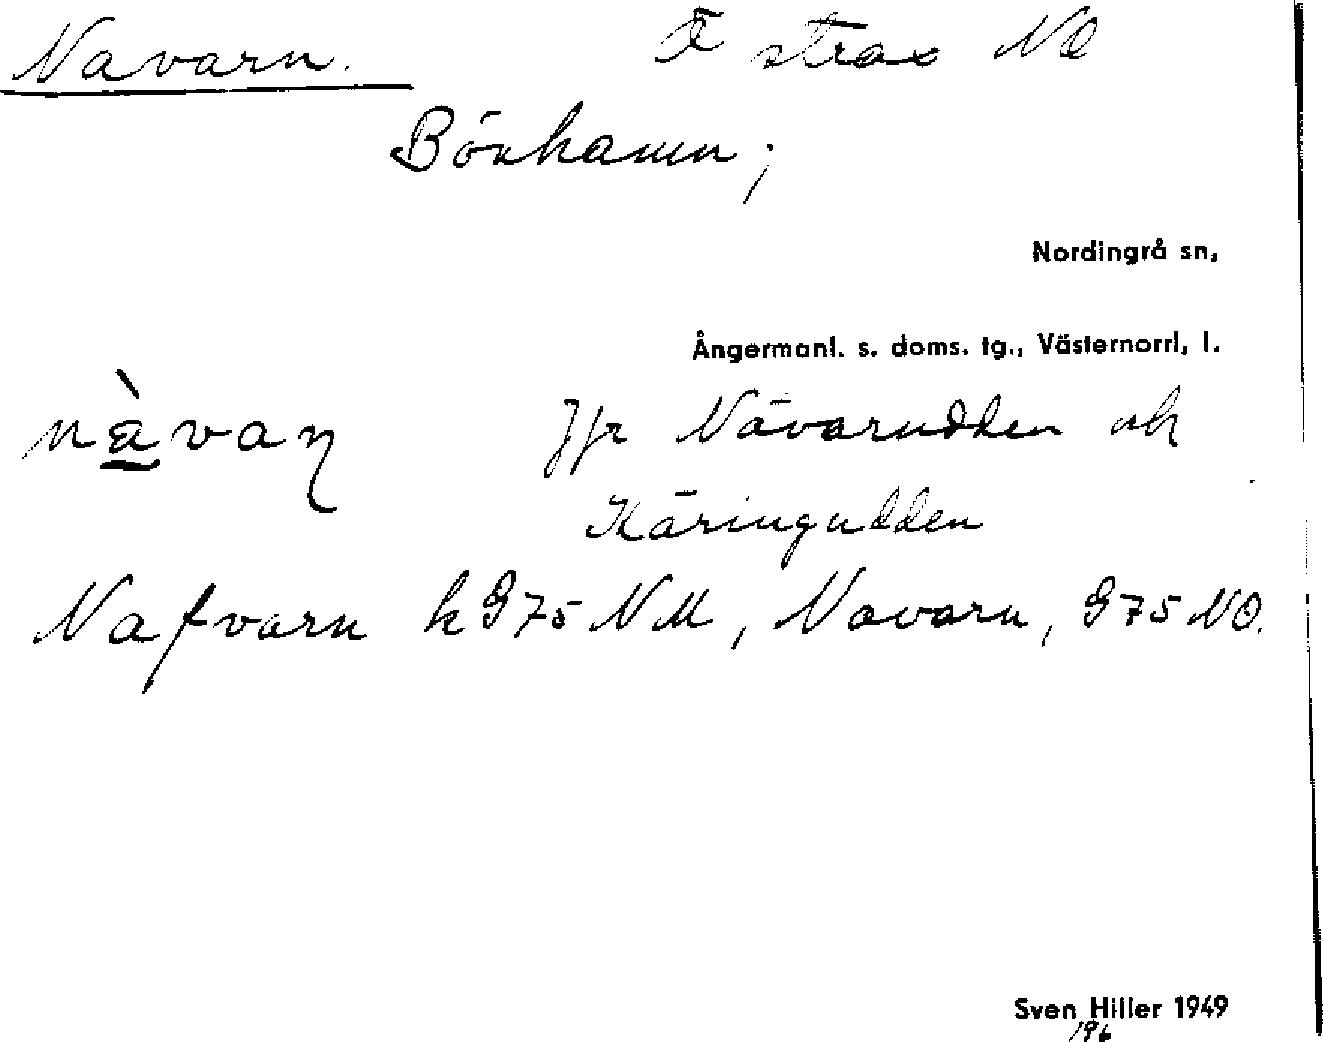 Navarn. Ö strax NO
Bönhamn;
Nordingrå sn,
Ångermanl. s. doms. tg., Västernorrl, l.
nàvaη Jfr Nävarudden och
Käringudden
Nafvarn k G75 NM, Navarn, G75 NO.
Sven Hiller 1949
196